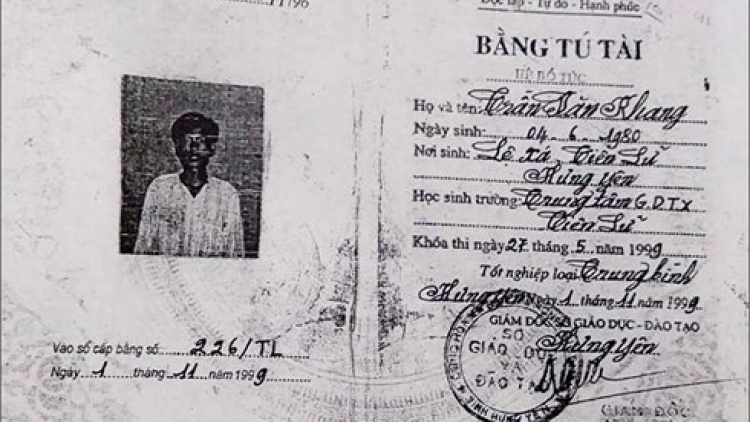 Độc lập - Tự do - Hạnh phúc
BẰNG TÚ TÀI
HỆ BỔ TÚC
Họ và tên: Trần Văn Khang
Ngày sinh: 04 - 6 - 1980
Nơi sinh: Lê Xá, Tiên Lữ
Hưng Yên
Học sinh trường: Trung tâm G.D.T.X
Tiên Lữ
Khóa thi ngày 27 tháng 5 năm 1999
Tốt nghiệp loại Trung bình
Hưng Yên Ngày 1 tháng 11 năm 1999
GIÁM ĐỐC SỞ GIÁO DỤC - ĐÀO TẠO
Hưng Yên
SỞ
GIÁO DỤC
VÀ
ĐÀO TẠO
TỈNH HƯNG YÊN
GIÁM ĐỐC
Vào sổ cấp bằng số 226/TL
Ngày 1 tháng 11 năm 1999